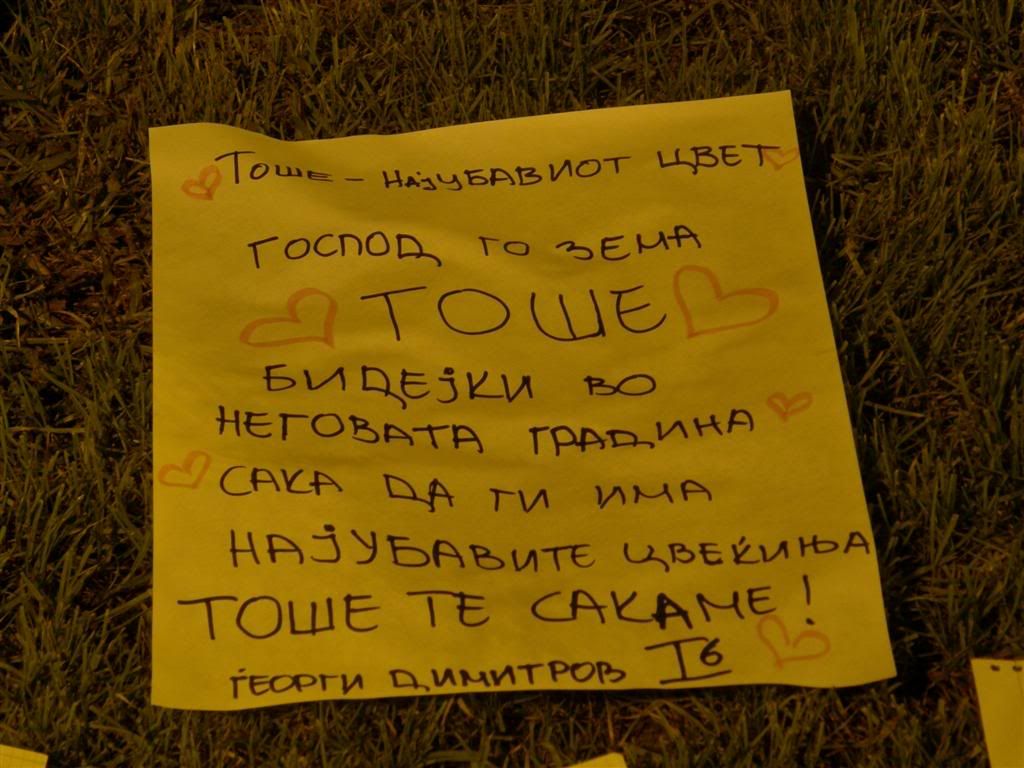 Тоше - НАЈУБАВИОТ ЦВЕТ
ГОСПОД ГО ЗЕМА
ТОШЕ
БИДЕЈКИ ВО
НЕГОВАТА ГРАДИНА
САКА ДА ГИ ИМА
НАЈУБАВИТЕ ЦВЕЌИЊА
ТОШЕ ТЕ САКАМЕ!
ЃЕОРГИ ДИМИТРОВ I б